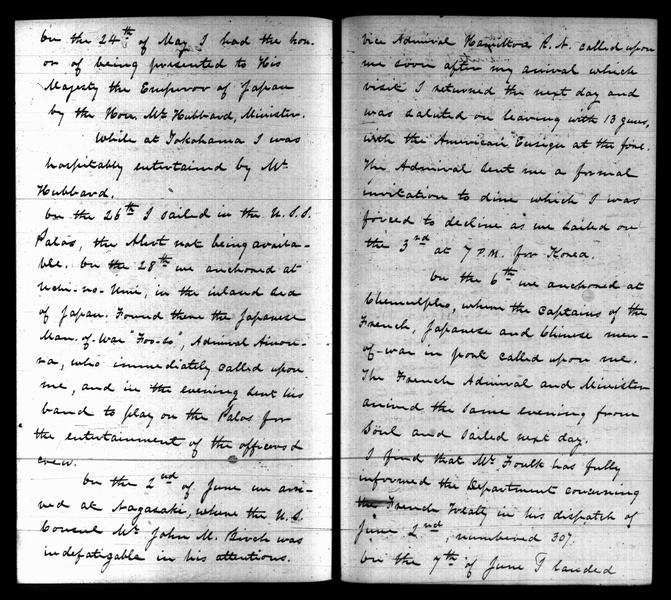 On the 24th of May I had the hon-
or of being presented to His
Majesty the Emperor of Japan
by the Hon. Mr. Hubbard, Minister.
While at Yokohama I was
hospitably entertained by Mr
Hubbard.
On the 26th I sailed in the U.S.S.
Palos, the Alert not being availa-
ble. On the 28th we anchored at
Uchi-no-Umi, in the inland sea
of Japan. Found there the Japanese
Man-of-War "Foo-so", Admiral
who immediately called upon
me, and in the evening sent his
band to play on the Palos for
the entertainment of the officers &
crew.
On the 2nd of June we arri-
ved at Nagasaki, where the U.S.
Consul Mr. John M. Birch was
indefatigable in his attentions.
Vice Admiral Hamilton R.N. called upon
me soon after my arrival which
visit I returned the next day and
was saluted on leaving with 13 guns,
with the American Ensign at the fore.
The Admiral sent me a formal
invitation to dine which I was
forced to decline as we sailed on
the 3rd at 7 P.M. for Korea.
On the 6th we anchored at
Chemulpho, where the captains of the
French, Japanese and Chinese men-
of-war in port called upon me.
The French Admiral and Minister
arrived the same evening from
Söul and sailed next day.
I find that Mr. Foulk has fully
informed the Department concerning
the French Treaty in his dispatch of
June 2nd, numbered 307.
On the 7th of June I landed